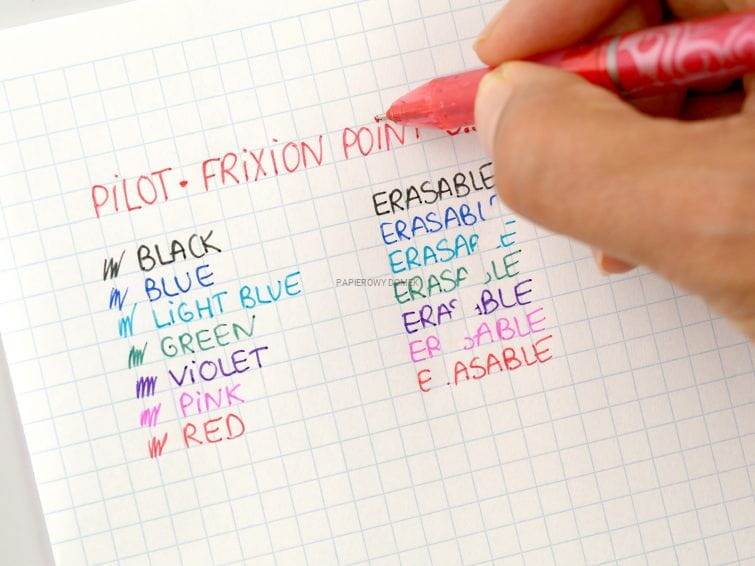 PiLOT · FRiXiON POiNT
BLACK
BLUE
LiGHT BLUE
GREEN
ViOLET
PiNK
RED
ERASABLE
ERASABL
ERASA E
ERASA LE
ERA BLE
ER ABLE
E ASABLE
PAPIEROWY DOMEK